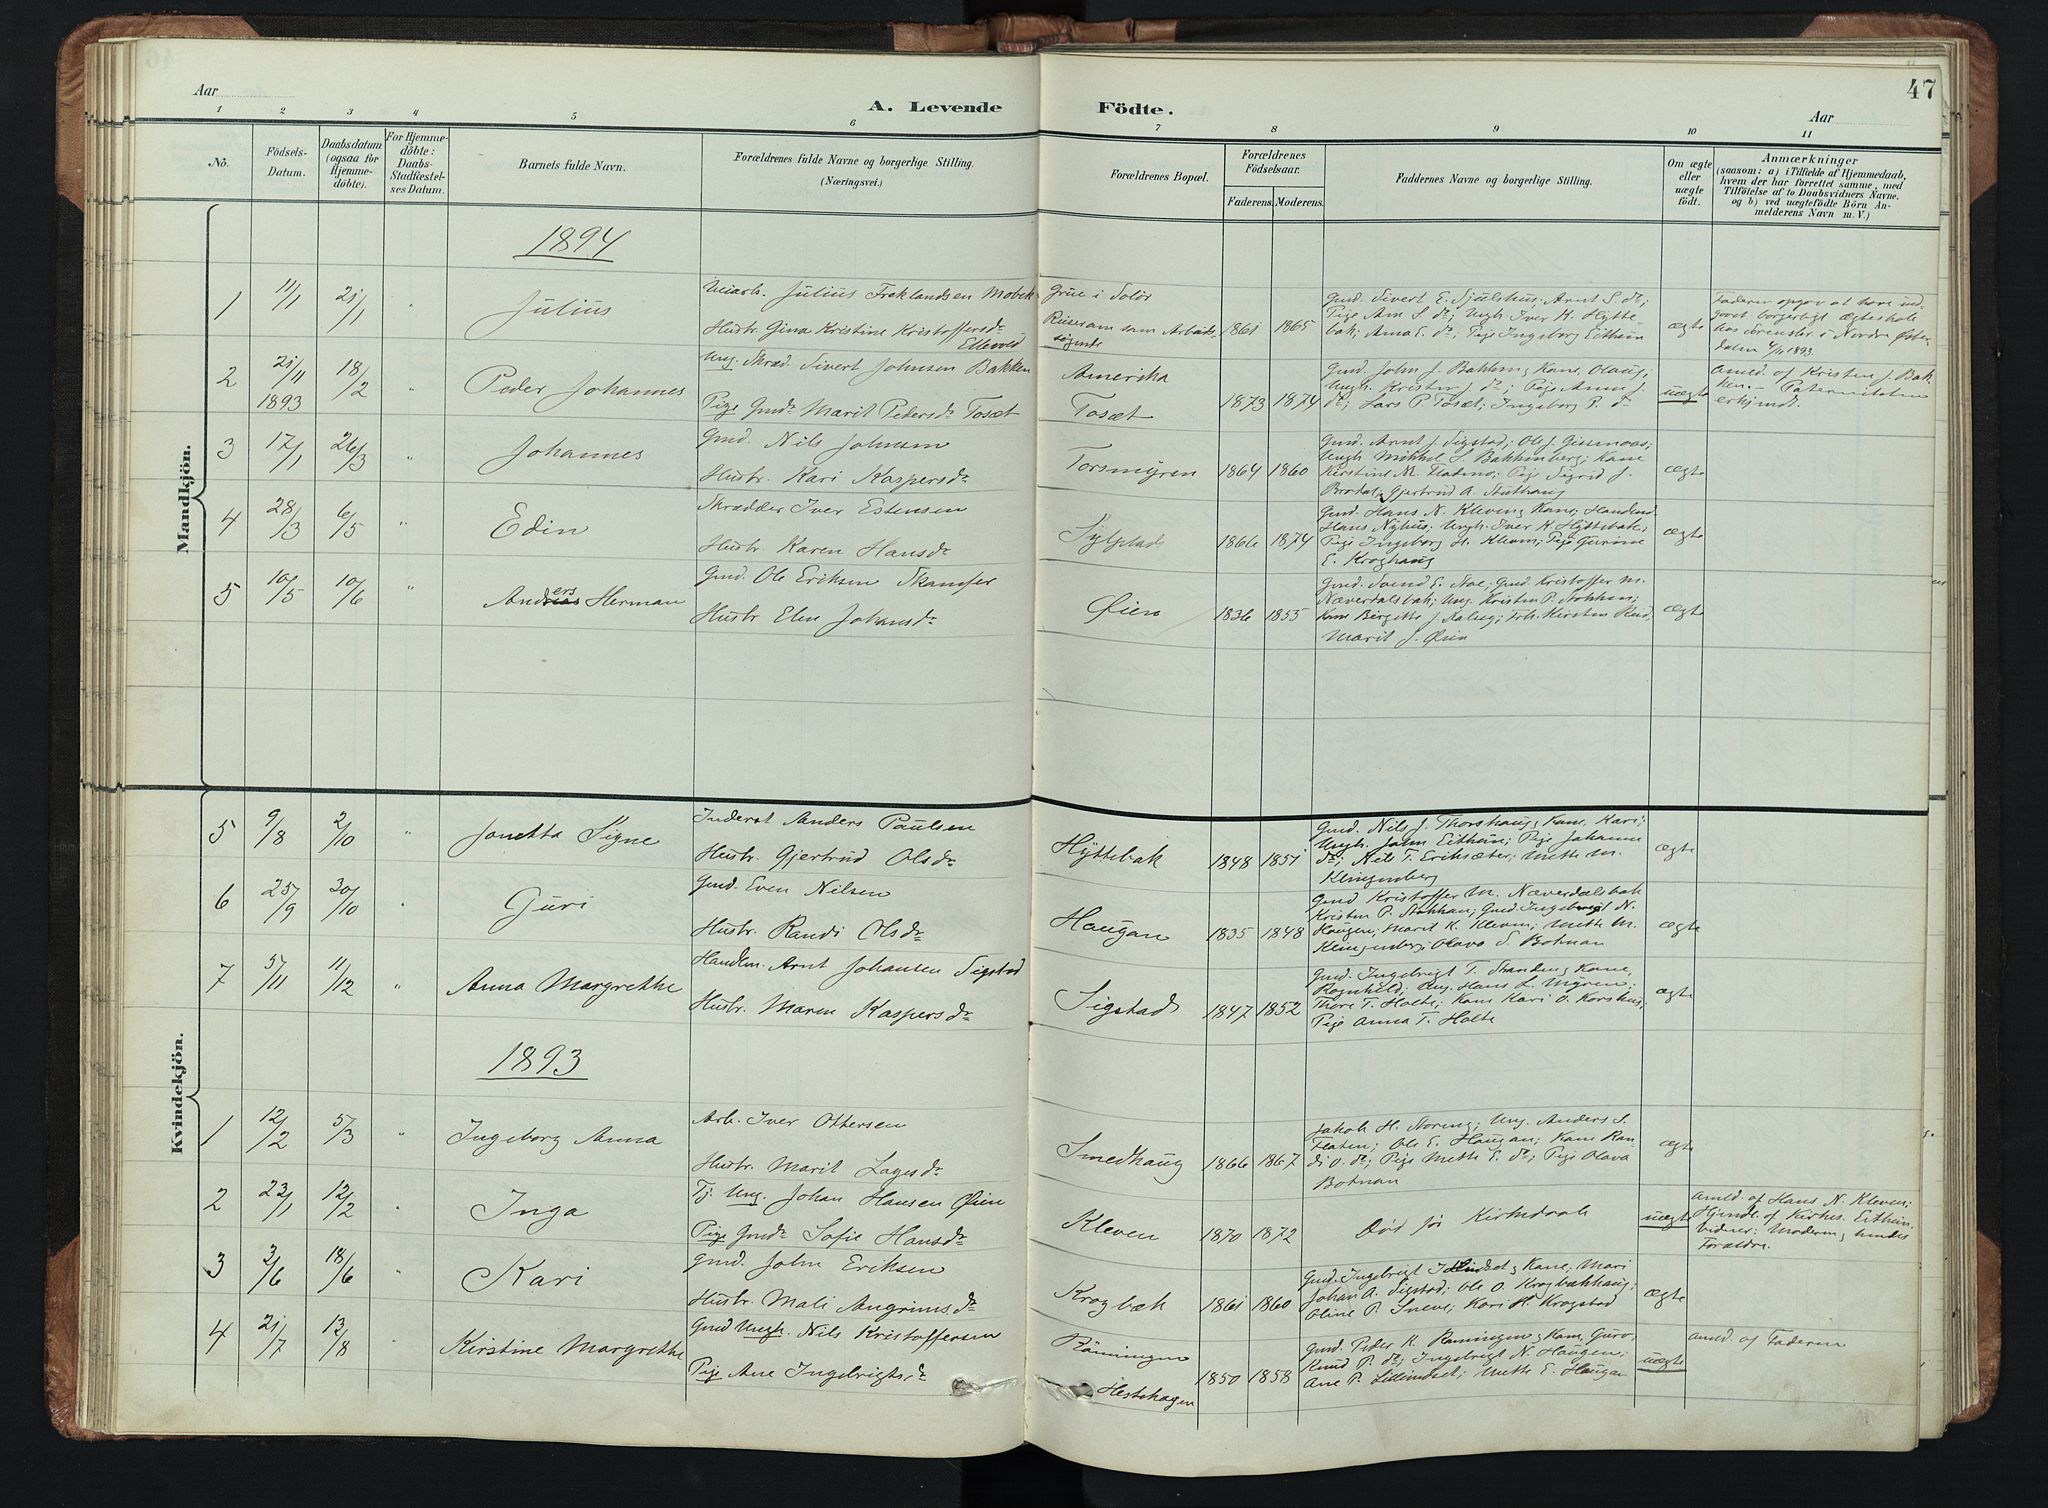 47
Aar
A. Levende Födte.
Aar
1 2 3 4 5 6 7 8 9 10 11
No.
Födsels-Datum.
Daabsdatum (ogsaa for Hjemmedöbte).
For Hjemmedöbte: Daabs-Stadfæstelses Datum.
Barnets fulde Navn.
Forældrenes fulde Navne og borgerlige Stilling. (Næringsvei.)
Forældrenes Bopæl.
Forældrenes Födselsaar.
Faderens. Moderens.
Faddernes Navne og borgerlige Stilling.
Om ægte eller uægte födt.
Anmærkninger
(saasom: a) i Tilfælde af Hjemmedaab, hvem der har forrettet samme, med Tilföielse af to Daabsvidners Navne, og b) ved uægtefödte Börn Anmelderens Navn m. V.)
Mandkjön.
1894
1 11/1 21/1 " Julius
Julius Freklandsen Mobek
Hustr. Gina Kristine Kristoffersdr. Ellevold
Grue i Solör
1861 1865
Gmd. Sivert E. Sjulshus; Arnt S. do;
Pige Ane S. do; Ungk. Iver H. Hytte
bak; Anna E. do; Pige Ingeborg Eithun
ægte
Faderen opgav at have ind
gaaet borgerligt ægteskab
i Nordre Øster
dalen 4/11 1893.
2 21/11 1893 18/2 " Peder Johannes
Ung. Skræd. Sivert Johnsen Bakken
Pige Gmdr. Marit Pedersdr. Tosæt
Amerika
Tosæt
1873 1874
Gmd. John J. Bakken & Kane Olaug;
Ungk. Kristen J. do; Pige Anne J.
do; Lars P. Tosæt; Ingeborg P. do
uægte
Anmeld. of Kristen J. Bak
ken. Paterniteten
erkjendt.
3 17/1 26/3 " Johannes
Gmd. Nils Johnsen
Hustr. Kari Kaspersdr.
Torsmyren
1864 1860
Gmd. Arnt J. Sigstad; Ole J. Gissenaas;
Ungk. Mikkel S. Bakkenberg; Kane
Kirstine M. Fladmo; Pige Sigrid J.
Brodal; Gjertrud A. Stuthaug
ægte
4 28/3 6/5 " Edin
Skrædder Iver Estensen
Hustr. Karen Hansdr.
1866 1874
Gmd. Hans N. Kleven & Kane; Handlmd
Hans Nyhus; Ungk. Iver H. Hyttebak;
Pige Ingeborg H. Kleven; Pige Gurine
E. Kroghaug
ægte
5 10/5 10/6 " Anders Herman
Gmd. Ole Eriksen Skamfer
Hustr. Elen Johansdr.
Øien
1836 1855
Gmd. Svend E. Moe; Gmd Kristoffer M.
Næverdalsbak; Ung. Kristen P. Stokkan;
Kane Birgitte J. Aalseg; Frk. Kirsten Rud,
Marit J. Øien
ægte
Kvindekjön.
5 9/8 2/10 " Jonetta Signe
Inderst Anders Paulsen
Hustr. Gjertrud Olsdr.
Hyttebak
1848 1851
Gmd. Nils J. Thorshaug & Kane Kari;
Ungk. John Eithun; Pige Johanne
do; Nils T. Eriksæter; Mette M.
Klingenberg
ægte
6 25/9 30/10 " Guri
Gmd. Even Nilsen
Hustr. Randi Olsdr.
Haugan
1835 1848
Gmd Kristoffer M. Næverdalsbak
Kristen P. Stokkan; Gmd. Ingebrigt N.
Haugen; Marit K. Kleven; Mette M.
Klingenberg; Olava S. Botnan
ægte
7 5/11 11/12 " Anna Margrethe
Handlm. Arnt Johansen Sigstad
Hustr. Maren Kaspersdr.
Sigstad
1847 1852
Gmd. Ingebrigt T. Stranden & Kane
Rognhild; Ung. Hans L. Myren;
Thore T. Holte; Kane Kari O. Korshus,
Pige Anna T. Holte
ægte
1893
1 12/2 5/3 " Ingeborg Anna
Arb. Iver Ottersen
Hustr. Marit Lagesdr.
Smedhaug
1866 1867
Jakob H. Noring; Ung. Anders S.
Flaten; Ole E. Haugan; Kane Ran
di O. do; Pige Mette E. do; Pige Olava
Botnan
ægte
2 23/1 12/2 " Inga
Tj. Ung. Johan Hansen Øien
Pige Gmdr. Sofie Hansdr.
Kleven
1870 1872
Død før Kirkedaab
uægte
Anmeld. of Hans N. Kleven;
Hjmdb. of Kirkes. Eithun
vidner: Moderen & hendes
Forældre.
3 3/6 18/6 " Kari
Gmd. John Eriksen
Hustr. Mali Angrimsdr.
Krogbæk
1861 1860
Gmd. Ingebrigt & Kane, Mari
Johan A. Sigstad; Ole O. Krogbækhaug;
Oline P. Sneve; Kari H. Krogstad
ægte
4 21/7 13/8 " Kirstine Margrethe
Gmd Ungk. Nils Kristoffersen
Pige Ane Ingebrigtsdr.
Rönningen
Hestehagen
1850 1858
Gmd. Peder K. Rønningen & Kane Guro.
Knud P. do; Ingebrigt N. Haugen;
Ane P. Lillemdset; Mette E. Haugan
uægte
Anmeld. of Faderen